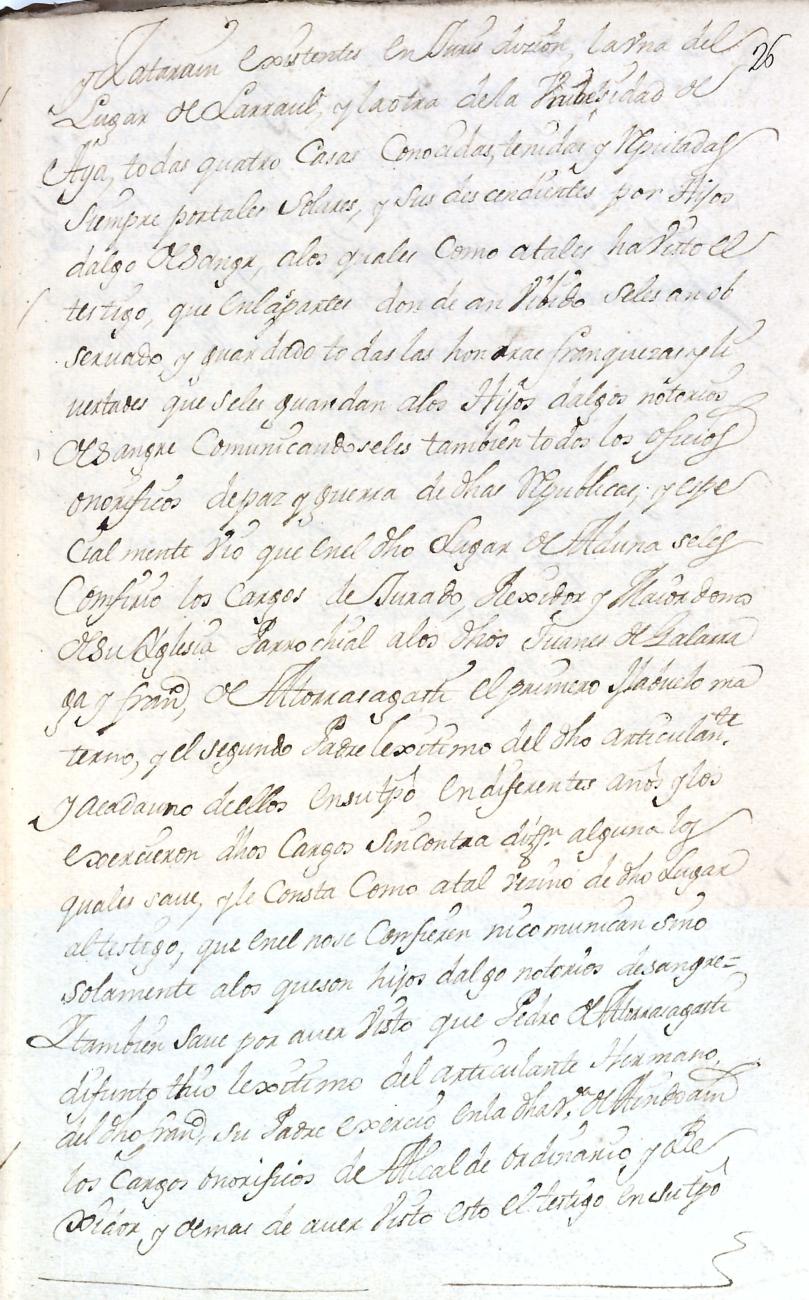 26
y Latarain existentes en Jurisdizion, la vna del
Lugar de Larraul, y la otra de la Vnibersidad de
Aya, todas quatro Casas Conocidas, tenidas y Reputadas
Siempre por tales Solares, y sus descendientes por Hijos
dalgo de Sangre, a los quales Como a tales ha Visto el
testigo, que en las partes donde an Vibido se les an ob
seruado y guardado todas las honrras franquezas y li
uertades que se les guardan a los Hijos dalgos notorios
de Sangre Comunicandoseles tambien todos los oficios
onorificos de paz y guerra de dhas Republicas, y espe
cialmente Vio que en el dho Lugar de Alduna se les
Confirio los Cargos de Jurado, Rexidor y Maiordomo
de su Yglesia Parrochial a los dhos Juanes de Galarra
ga y franco, de Atorrasagasti el primero Visabuelo ma
terno, y el segundo Padre lexitimo del dho articulante.
Y a cada uno de ellos en su tpo en diferentes años y los
exercieron dhos Cargos sin contradizn alguna los
quales saue, y le Consta Como a tal vezino de dho Lugar
al testigo, que en el no se Confieren ni comunican sino
solamente a los que son hijos dalgo notorios de sangre=
Y tambien saue por auer Visto que Pedro de Atorrasagasti
difunto thio lexitimo del articulante Hermano,
del dho franco, su Padre exercio en la dha Va. de Andoain
los Cargos onorificos de Alcalde ordinario, y de Re
xidor, y demas de auer Visto esto el testigo en su tpo